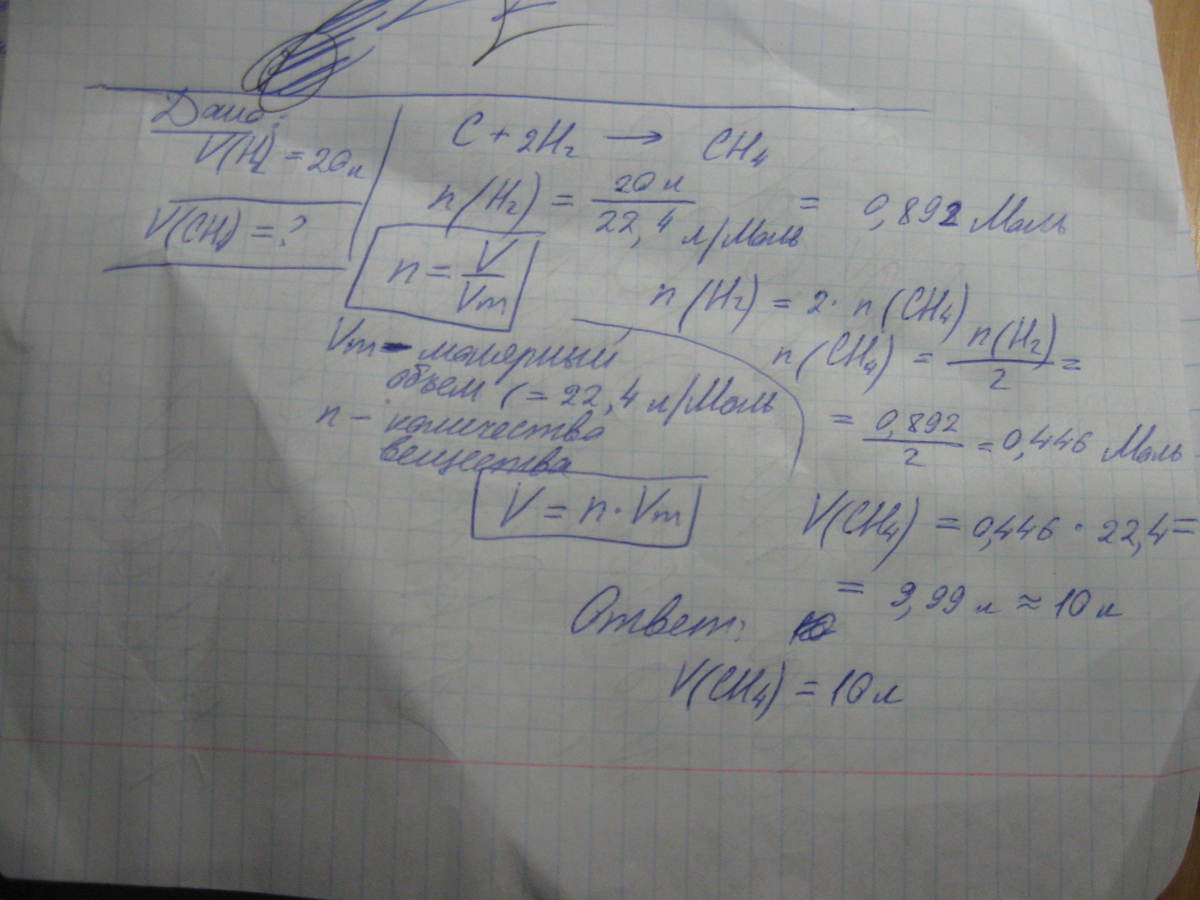 Дано:
V(H₂ = 20 л
V(CH₄) = ?
C + 2H₂ → CH₄
n(H₂) = 20 л / 22,4 л/моль = 0,892 моль
n = V / Vm
Vm - молярный
объем (= 22,4 л/моль
n - количество
вещества
V = n · Vm
n(H₂) = 2 · n(CH₄)
n(CH₄) = n(H₂) / 2 =
= 0,892 / 2 = 0,446 моль
V(CH₄) = 0,446 · 22,4 =
= 9,99 л ≈ 10 л
Ответ:
V(CH₄) = 10 л